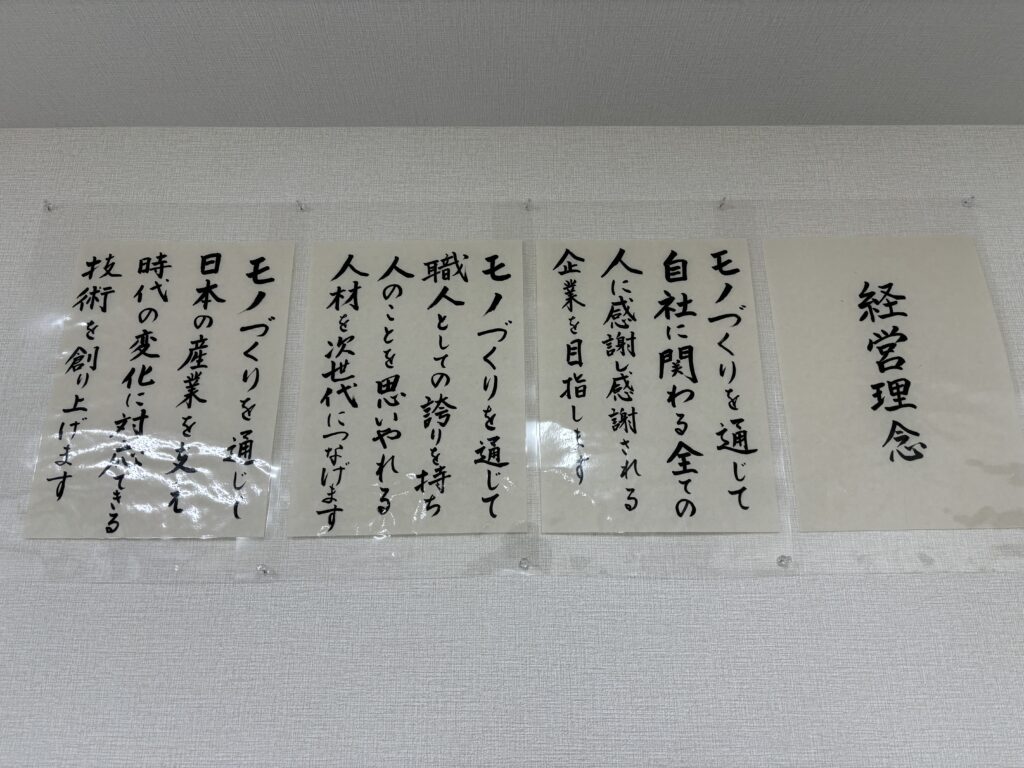 経営理念
モノづくりを通じて
自社に関わる全ての
人に感謝し感謝される
企業を目指します
モノづくりを通じて
職人としての誇りを持ち
人のことを思いやれる
人材を次世代につなげます
モノづくりを通じて
日本の産業を支え
時代の変化に対応できる
技術を創り上げます